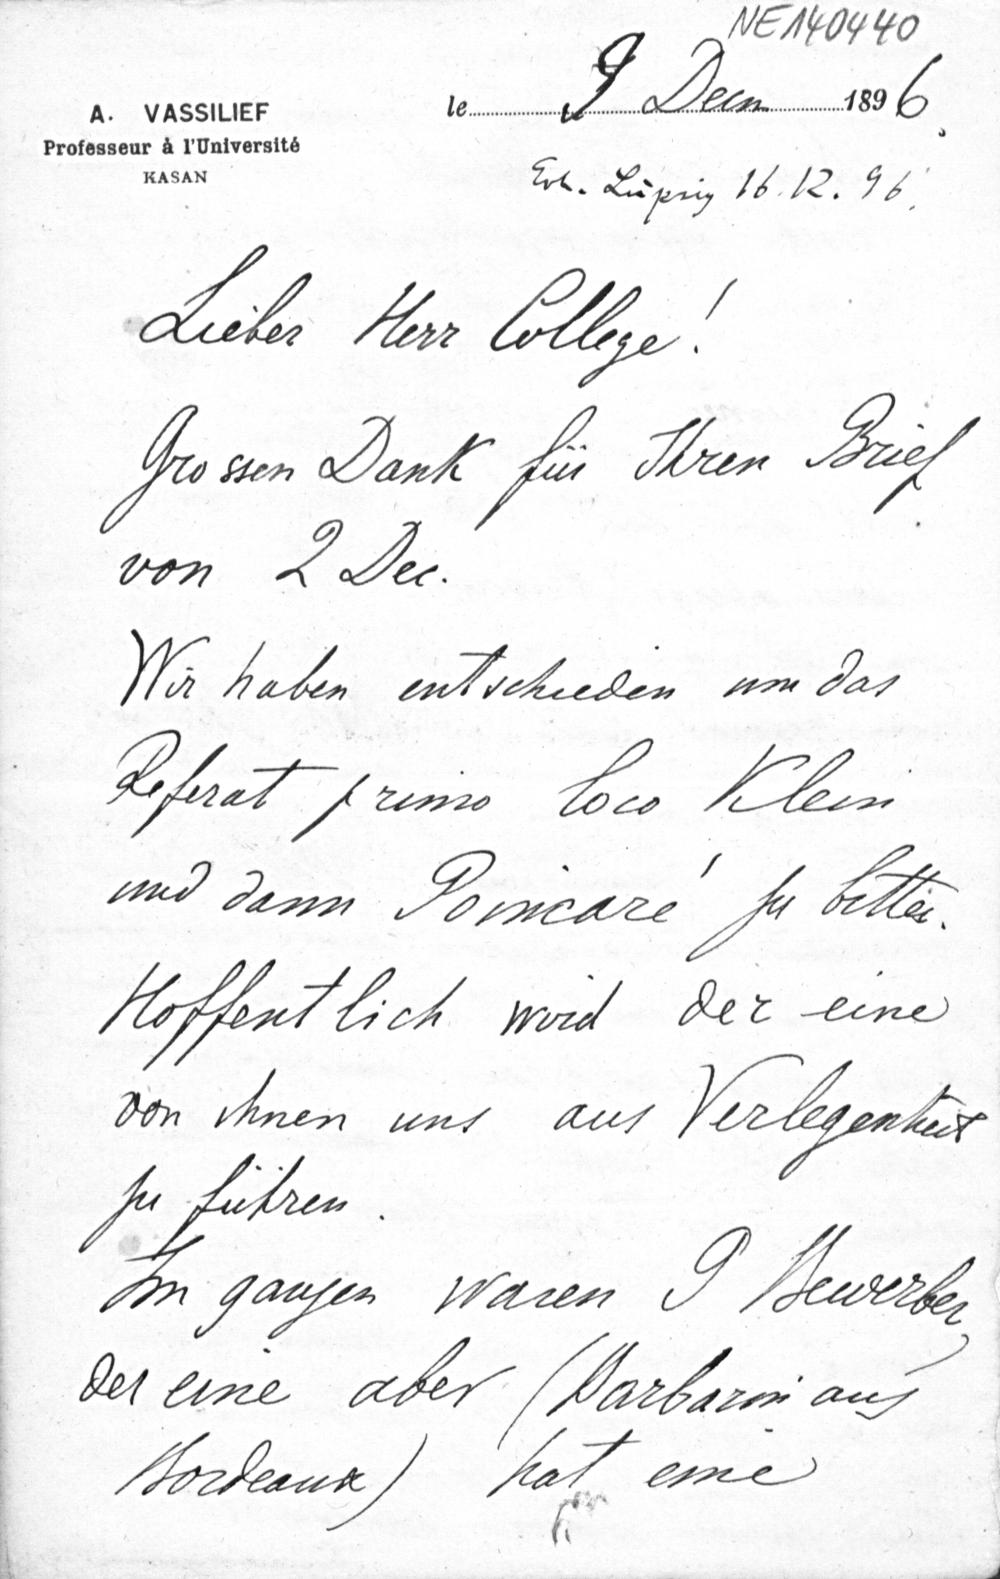 NE140440
le 9 Decn 1896.
A. VASSILIEF
Professeur à l'Université
KASAN
Erh. Leipzig 16.12.96.
Lieber Herr College!
Grossen Dank für Ihren Brief
von 2 Dec.
Wir haben entschieden um das
Referat primo loco Klein
und dann Poincaré zu bitten.
Hoffentlich wird der eine
von ihnen uns aus Verlegenheit
zu führen.
Im ganzen waren 9 Bewerber,
der eine aber (Barbarin aus
Bordeaux) hat eine